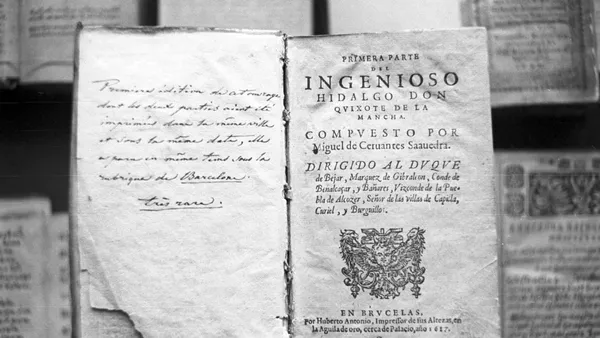 Première édition de cet ouvrage
dont les deux parties aient été
imprimées dans la même ville
et sous la même date, elle
a paru en même tems sous la
rubrique de Barcelone.
très rare.
PRIMERA PARTE
DEL
INGENIOSO
HIDALGO DON
QVIXOTE DE LA
MANCHA.
COMPVESTO POR
Miguel de Ceruantes Saauedra.
DIRIGIDO AL DVQUE
de Bejar, Marquez de Gibraleon, Conde de
Benalcaçar, y Bañares, Vizconde de la Pue-
bla de Alcozer, Señor de las villas de Capilla,
Curiel, y Burguillos.
EN BRVCELAS,
Por Huberto Antonio, Impressor de sus Altezas, en
la Aguila de oro, cerca de Palacio, año 1617.